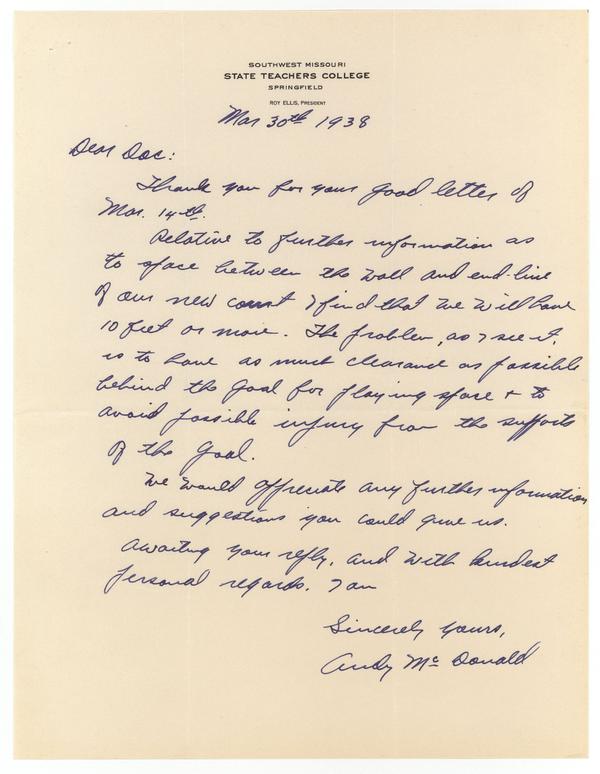 SOUTHWEST MISSOURI
STATE TEACHERS COLLEGE
SPRINGFIELD
ROY ELLIS, PRESIDENT
Mar 30th 1938
Dear Doc:
Thank you for your good letter of
Mar. 14th.
Relative to further information as
to space between the wall and end-line
of our new court I find that we will have
10 feet or more. The problem, as I see it,
is to have as much clearance as possible
behind the goal for playing space + to
avoid possible injury from the supports
of the goal.
We would appreciate any further information
and suggestions you could give us.
Awaiting your reply, and with kindest
personal regards. I am
Sincerely yours,
Andy McDonald